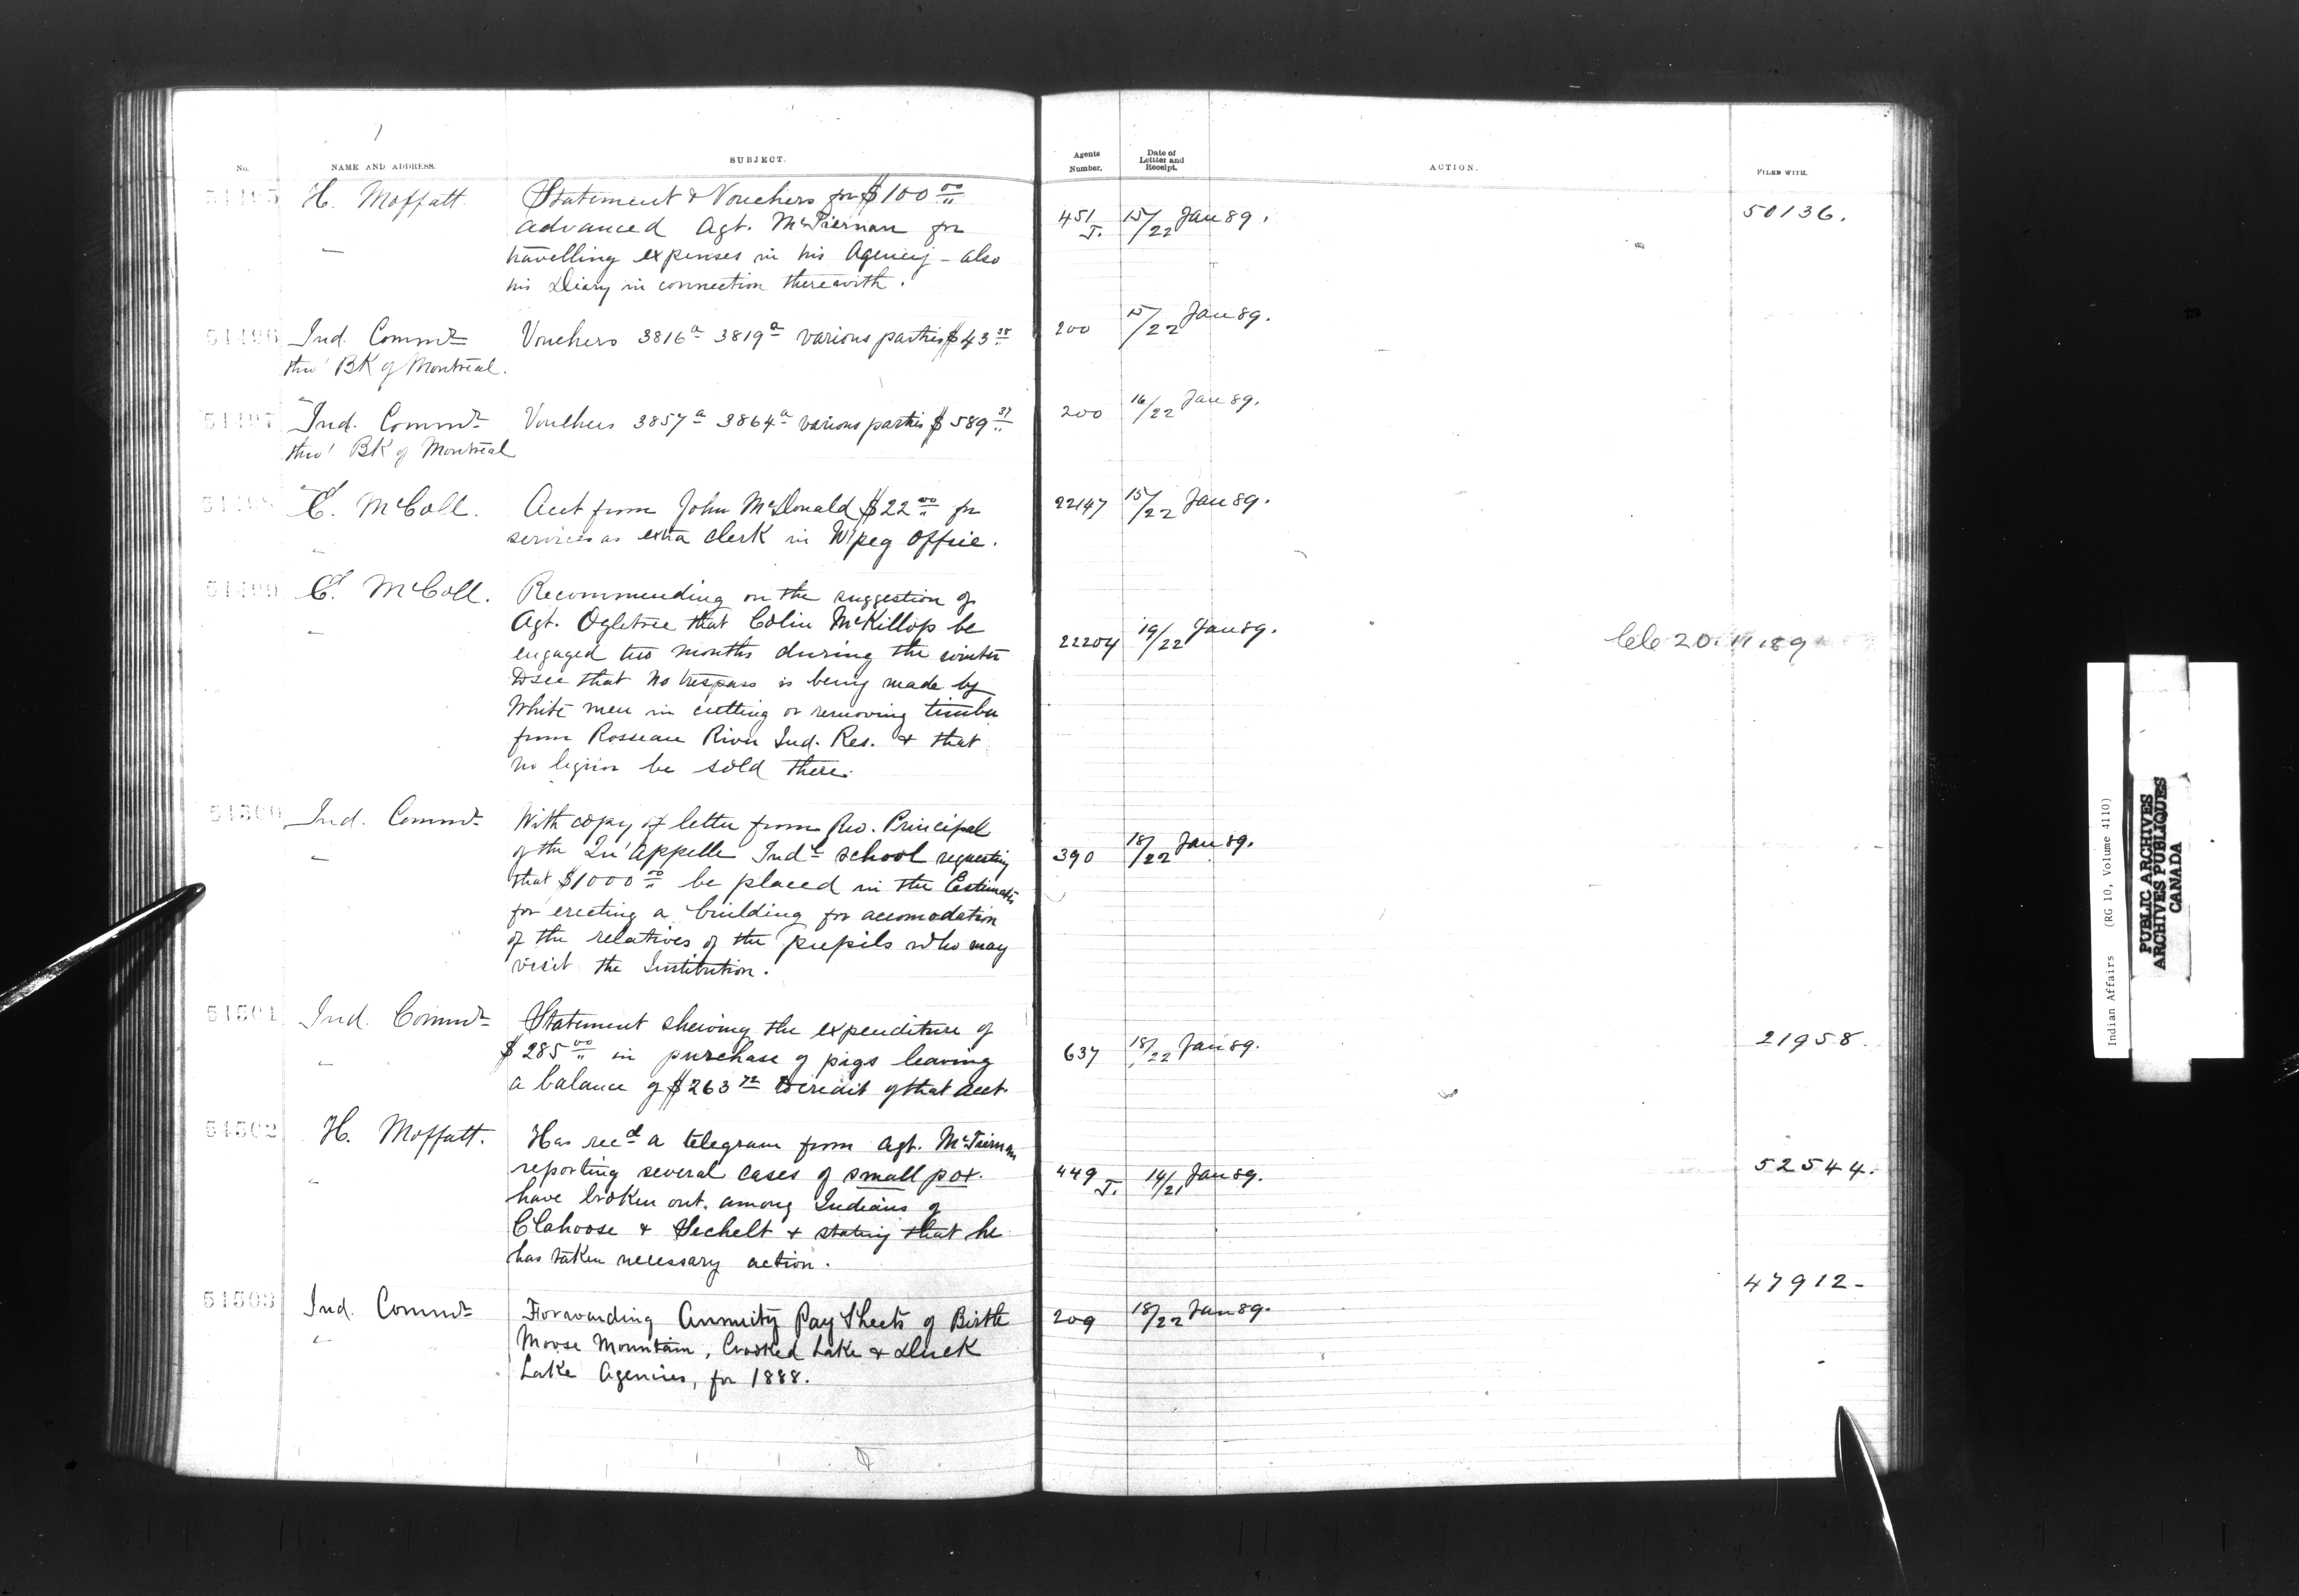 No. NAME AND ADDRESS. SUBJECT. Agents Number. Date of Letter and Receipt. ACTION. FILED WITH.
54495 H. Moffatt. Statement & Vouchers for $100 00 451 J. 15/22 Jan 89. 50136.
advanced Agt. McTiernan for
travelling expenses in his Agency – also
his Diary in connection therewith.
54496 Ind. Commr Vouchers 3816a 3819a various parties $43 38 200 15/22 Jan 89.
thro' BK of Montreal.
54497 Ind. Commr Vouchers 3857a 3864a various parties $589 37 200 16/22 Jan 89.
thro' BK of Montreal
54498 E. McColl. Acct from John McDonald $22 00 for 22147 15/22 Jan 89.
services as extra clerk in W'peg office.
54499 E. McColl. Recommending on the suggestion of
Agt. Ogletree that Colin McKillop be
engaged two months during the winter 22204 19/22 Jan 89. 20.11.89
to see that no trespass is being made by
White men in cutting or removing timber
from Rosseau River Ind. Res. & that
no liquor be sold there.
54500 Ind. Commr With copy of letter from Rev. Principal
of the Qu'Appelle Indl school requesting 390 18/22 Jan 89.
that $1000 00 be placed in the Estimates
for erecting a building for accomodation
of the relatives of the pupils who may
visit the Institution.
54501 Ind. Commr Statement shewing the expenditure of
$285 00 in purchase of pigs leaving 637 18/22 Jan 89. 21958.
a balance of $263 72 to credit of that acct.
54502 H. Moffatt. Has recd a telegram from Agt. McTiernan
reporting several cases of small pox. 449 J. 14/21 Jan 89. 52544.
have broken out among Indians of
Clahoose & Sechelt & stating that he
has taken necessary action.
54503 Ind. Commr Forwarding Annuity Pay Sheets of Birtle 209 18/22 Jan 89. 47912-
Moose Mountain, Crooked Lake & Duck
Lake Agencies, for 1888.
Indian Affairs (RG 10, Volume 4110)
PUBLIC ARCHIVES
ARCHIVES PUBLIQUES
CANADA